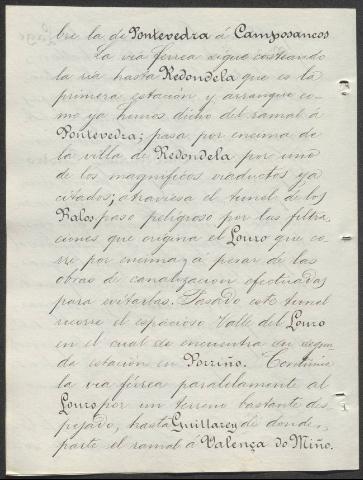 bre la de Pontevedra á Camposancos
La via ferrea sigue costeando
la ria hasta Redondela que es la
primera estación y arranque co-
mo ya hemos dicho del ramal á
Pontevedra; pasa por encima de
la villa de Redondela por uno
de los magnificos viaductos ya
citados; atraviesa el tunel de los
Valos paso peligroso por las filtra-
ciones que origina el Louro que co-
rre por encima, á pesar de las
obras de canalizacion efectuadas
para evitarlas. Pasado este tunel
recorre el espacioso Valle del Louro
en el cual se encuentra su segun-
da estación en Porriño. Continúa
la via férrea paralelamente al
Louro por un terreno bastante des-
pejado, hasta Guillarey de donde
parte el ramal á Valença do Miño.